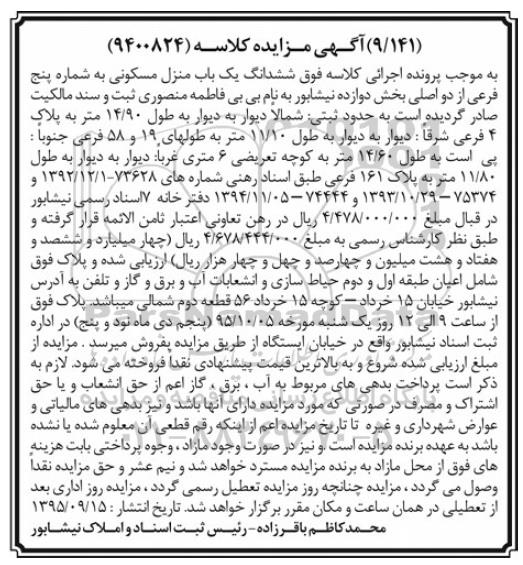 (۹/۱۴۱) آگهی مزایده کلاسه (۹۴۰۰۸۲۴)
به موجب پرونده اجرائی کلاسه فوق ششدانگ یک باب منزل مسکونی به شماره پنج
فرعی از دو اصلی بخش دوازده نیشابور به نام بی بی فاطمه منصوری ثبت و سند مالکیت
صادر گردیده است به حدود ثبتی: شمالا دیوار به دیوار به طول ۱۴/۹۰ متر به پلاک
۴ فرعی شرقا : دیوار به دیوار به طول ۱۱/۱۰ متر به طولهای ۱۹ و ۵۸ فرعی جنوبا :
پی است به طول ۱۴/۶۰ متر به کوچه تعریضی ۶ متری غربا: دیوار به دیوار به طول
۱۱/۸۰ متر به پلاک ۱۶۱ فرعی طبق اسناد رهنی شماره های ۷۳۶۲۸-۱۳۹۲/۱۲/۱ و
۷۵۳۷۴ – ۱۳۹۳/۱۰/۲۹ و ۷۴۴۴۴ – ۱۳۹۴/۱۱/۰۵ دفتر خانه ۷اسناد رسمی نیشابور
در قبال مبلغ ۴/۴۷۸/۰۰۰/۰۰۰ ریال در رهن تعاونی اعتبار ثامن الائمه قرار گرفته و
طبق نظر کارشناس رسمی به مبلغ ۴/۶۷۸/۴۴۴/۰۰۰ ریال (چهار میلیارد و ششصد و
هفتاد و هشت میلیون و چهارصد و چهل و چهار هزار ریال) ارزیابی شده و پلاک فوق
شامل اعیان طبقه اول و دوم حیاط سازی و انشعابات آب و برق و گاز و تلفن به آدرس
نیشابور خیابان ۱۵ خرداد – کوچه ۱۵ خرداد ۵۶ قطعه دوم شمالی میباشد. پلاک فوق
از ساعت ۹ الی ۱۲ روز یک شنبه مورخه ۹۵/۱۰/۰۵ (پنجم دی ماه نود و پنج) در اداره
ثبت اسناد نیشابور واقع در خیابان ایستگاه از طریق مزایده بفروش میرسد . مزایده از
مبلغ ارزیابی شده شروع و به بالاترین قیمت پیشنهادی نقدا فروخته می شود. لازم به
ذکر است پرداخت بدهی های مربوط به آب ، برق ، گاز اعم از حق انشعاب و یا حق
اشتراک و مصرف در صورتی که مورد مزایده دارای آنها باشد و نیز بدهی های مالیاتی و
عوارض شهرداری و غیره تا تاریخ مزایده اعم از اینکه رقم قطعی آن معلوم شده یا نشده
باشد به عهده برنده مزایده است .و نیز در صورت وجود مازاد ، وجوه پرداختی بابت هزینه
های فوق از محل مازاد به برنده مزایده مسترد خواهد شد و نیم عشر و حق مزایده نقدا
وصول می گردد ، مزایده چنانچه روز مزایده تعطیل رسمی گردد ، مزایده روز اداری بعد
از تعطیلی در همان ساعت و مکان مقرر برگزار خواهد شد. تاریخ انتشار : ۱۳۹۵/۰۹/۱۵
محمدکاظم باقرزاده – رئیس ثبت اسناد و املاک نیشابور